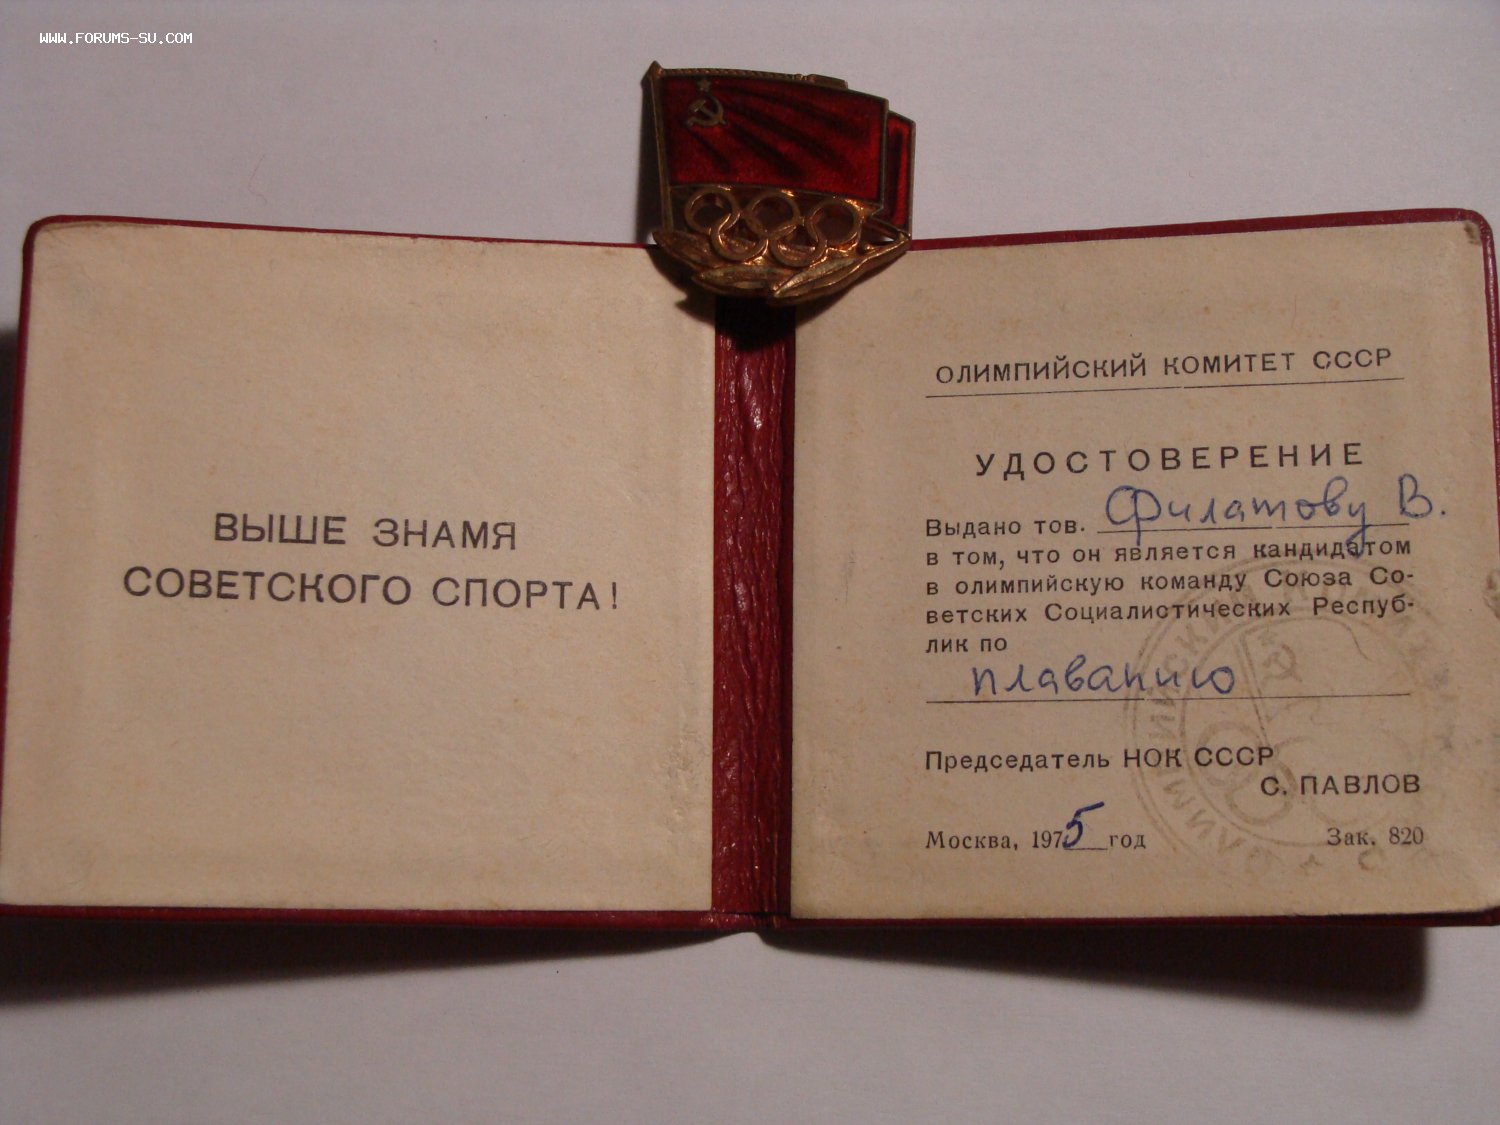 WWW.FORUMS-SU.COM
ВЫШЕ ЗНАМЯ
СОВЕТСКОГО СПОРТА!
ОЛИМПИЙСКИЙ КОМИТЕТ СССР
УДОСТОВЕРЕНИЕ
Выдано тов. Филатову В.
в том, что он является кандидатом
в олимпийскую команду Союза Со-
ветских Социалистических Респуб-
лик по
плаванию
Председатель НОК СССР
С. ПАВЛОВ
Москва, 1975 год Зак. 820